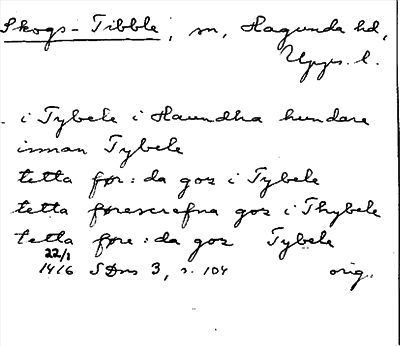 Skogs-Tibble, sn, Hagunda hd,
Upps. l.
i Tybele i Haundha hundare
innan Tybele
tetta før:da goz i Tybele
tetta førescrefna goz i Thybele
tetta føre:da goz Tybele
22/1
1416 SDns 3, s. 104 orig.